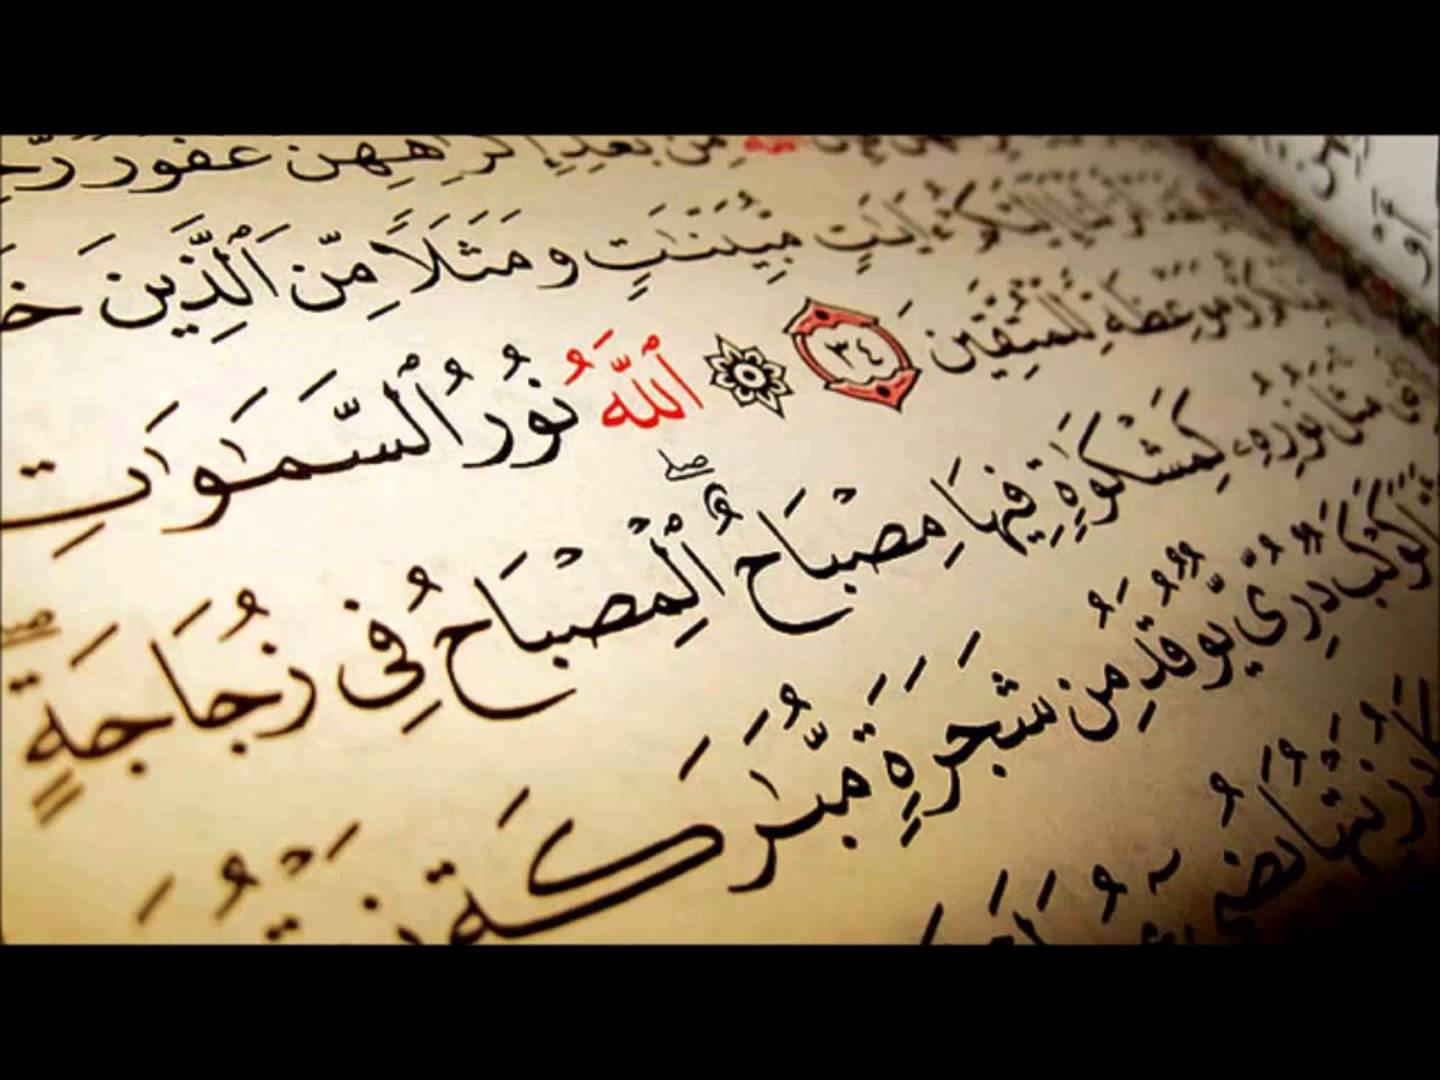 مِنۢ بَعْدِ إِكْرَٰهِهِنَّ غَفُورٌ
إِلَيْكُمْ ءَايَٰتٍ مُّبَيِّنَٰتٍ وَمَثَلًا مِّنَ ٱلَّذِينَ
وَمَوْعِظَةً لِّلْمُتَّقِينَ ٣٤ ۞ ٱللَّهُ نُورُ ٱلسَّمَٰوَٰتِ
مَثَلُ نُورِهِۦ كَمِشْكَوٰةٍ فِيهَا مِصْبَاحٌ ۖ ٱلْمِصْبَاحُ فِى زُجَاجَةٍ
كَوْكَبٌ دُرِّىٌّ يُوقَدُ مِن شَجَرَةٍ مُّبَٰرَكَةٍ
زَيْتُهَا يُضِىٓءُ